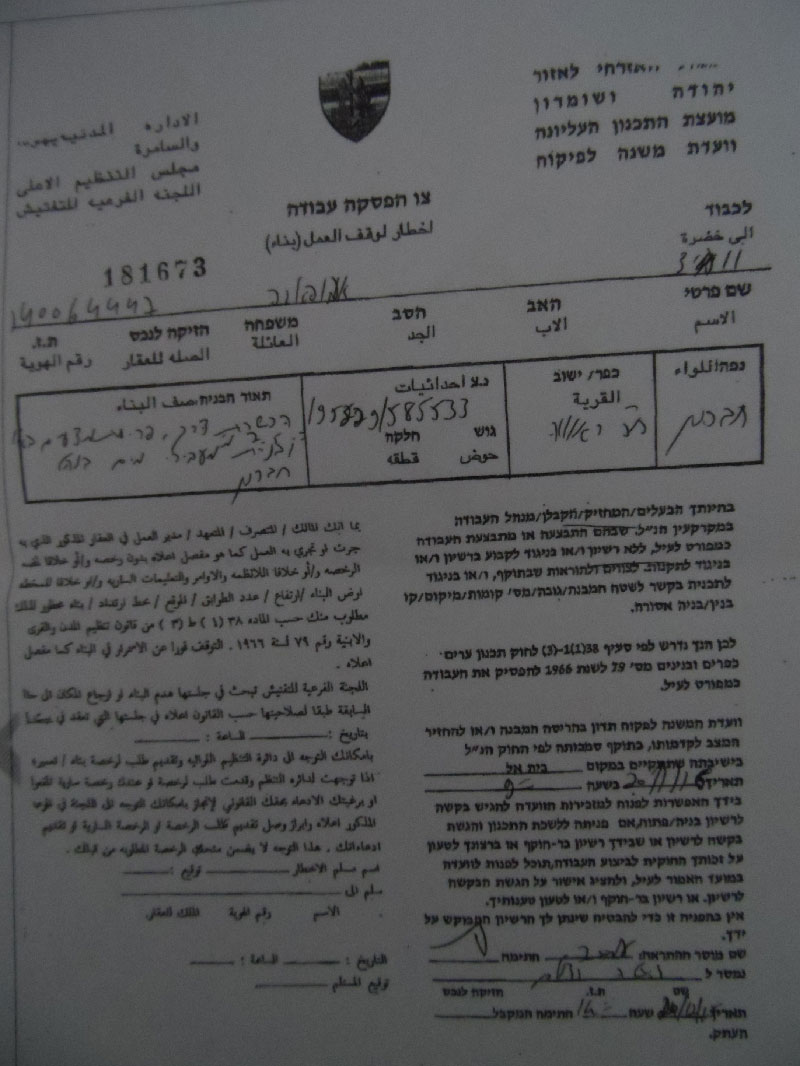 האזרחי לאזור
יהודה ושומרון
מועצת התכנון העליונה
וועדת משנה לפיקוח
الادارة المدنية
والسامرة
مجلس التنظيم الاعلى
اللجنه الفرعيه للتفتيش
צו הפסקה עבודה
اخطار لوقف العمل (بناء)
לכבוד
الى حضرة
181673
שם פרטי האב הסב משפחה הזיקה לנכס ת.ז.
الاسم الاب الجد العائلة الصله للعقار رقم الهوية
נפה/اللواء
חברון
כפר/ישוב
القرية
נ.צ احداثيات
גוש חלקה
حوض قطعه
תאור הבניה وصف البناء
חברון
בהיותך הבעלים/המחזיק/הקבלן/מנהל העבודה
במקרקעין הנ"ל, שבהם התבצעה או מתבצעת העבודה
כמפורט לעיל, ללא רשיון ו/או בניגוד לקבוע ברשיון ו/או
בניגוד לתקנות, לצווים ולהוראות שבתוקף, ו/או בניגוד
לתכנית בקשר לשטח המבנה/גובה/מס' קומות/מיקום/קו
בנין/בניה אסורה.
לכן הנך נדרש לפי סעיף 38(1)-(3) לחוק תכנון ערים
כפרים ובנינים מס' 79 לשנת 1966 להפסיק את העבודה
כמפורט לעיל.
וועדת המשנה לפקוח תדון בהריסה המבנה ו/או להחזיר
המצב לקדמותו, בתוקף סמכותה לפי החוק הנ"ל
בישיבתה שתתקיים במקום בית אל
תאריך בשעה
בידך האפשרות לפנות למזכירות הוועדה להגיש בקשה
לרשיון בניה/פתוח, אם פניתה ללשכת התכנון והגשת
בקשה לרשיון או שבידך רשיון בר-תוקף או ברצונך לטעון
על זכותך החוקית לביצוע העבודה, תוכל לפנות לועדה
במועד האמור לעיל, ולהציג אישור על הגשת הבקשה
לרשיון, או רשיון בר-תוקף ו/או לטעון טענותיך.
אין בהפניה זו כדי להבטיח שינתן לך הרשיון המבוקש על
ידך.
שם מוסר ההתראה: חתימה
נמסר ל
שם ת.ז. הזיקה לנכס
תאריך שעה חתימה המקבל
העתק.
بما انك المالك / المتصرف / المتعهد / مدير العمل في العقار المذكور الذي به
جرت او تجري به العمل كما هو مفصل اعلاه بدون رخصه و/أو خلافا لهذه
الرخصه و/أو خلافا للانظمه والاوامر والتعليمات الساريه و/أو خلافا للمخطط
لوض البناء / ارتفاع / عدد الطوابق / الموقع / خط ارتداد / بناء محظور لذلك
مطلوب منك حسب الماده ٣٨ (١) ط (٣) من قانون تنظيم المدن والقرى
والابنية رقم ٧٩ لسنة ١٩٦٦ . التوقف فورا عن الاستمرار في البناء كما مفصل
اعلاه .
اللجنة الفرعية للتفتيش تبحث في جلستها هدم البناء او ارجاع المكان الى حالته
السابقة طبقا لصلاحيتها حسب القانون اعلاه في جلستها التي تعقد في
بتاريخ : الساعة :
بامكانك التوجه الى دائرة التنظيم اللوائيه وتقديم طلب لرخصة بناء / تعمير
اذا توجهت لدائره التنظيم وقدمت طلب لرخصة او عندك رخصة سارية المفعول
او برغبتك الادعاء بحقك القانوني لإنجاز بامكانك التوجه الى اللجنة في
المذكور اعلاه وابراز وصل تقديم طلب الرخصة او الرخصة السارية او تقديم
ادعاءاتك . هذا التوجه لا يضمن منحك الرخصة المطلوبه من قبلك .
اسم مسلم الاخطار توقيع :
سلم الى
الاسم رقم الهوية المالك للعقار
التاريخ : الساعة :
توقيع المستلم